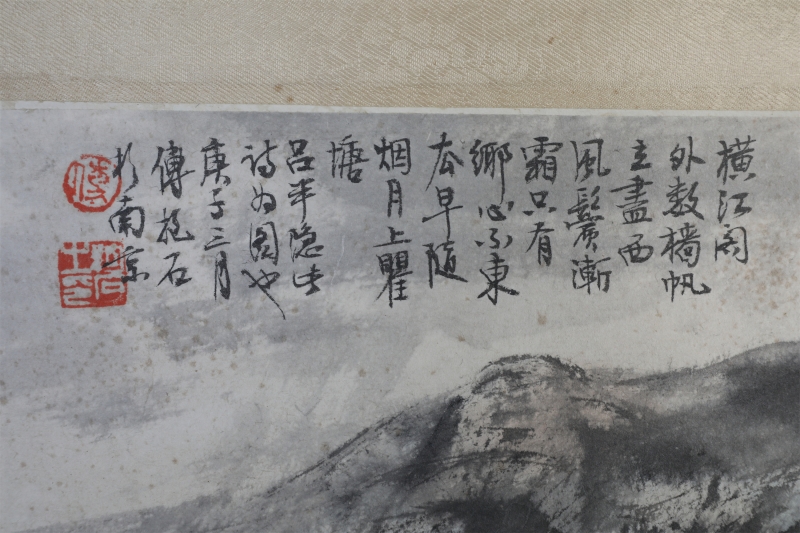 橫江閣
外數檣帆
立盡西
風鬢漸
霜只有
鄉心不東
去早隨
烟月上瞿
塘
吕半隐此
詩为圖也
庚子三月
傅抱石
於南京
傅